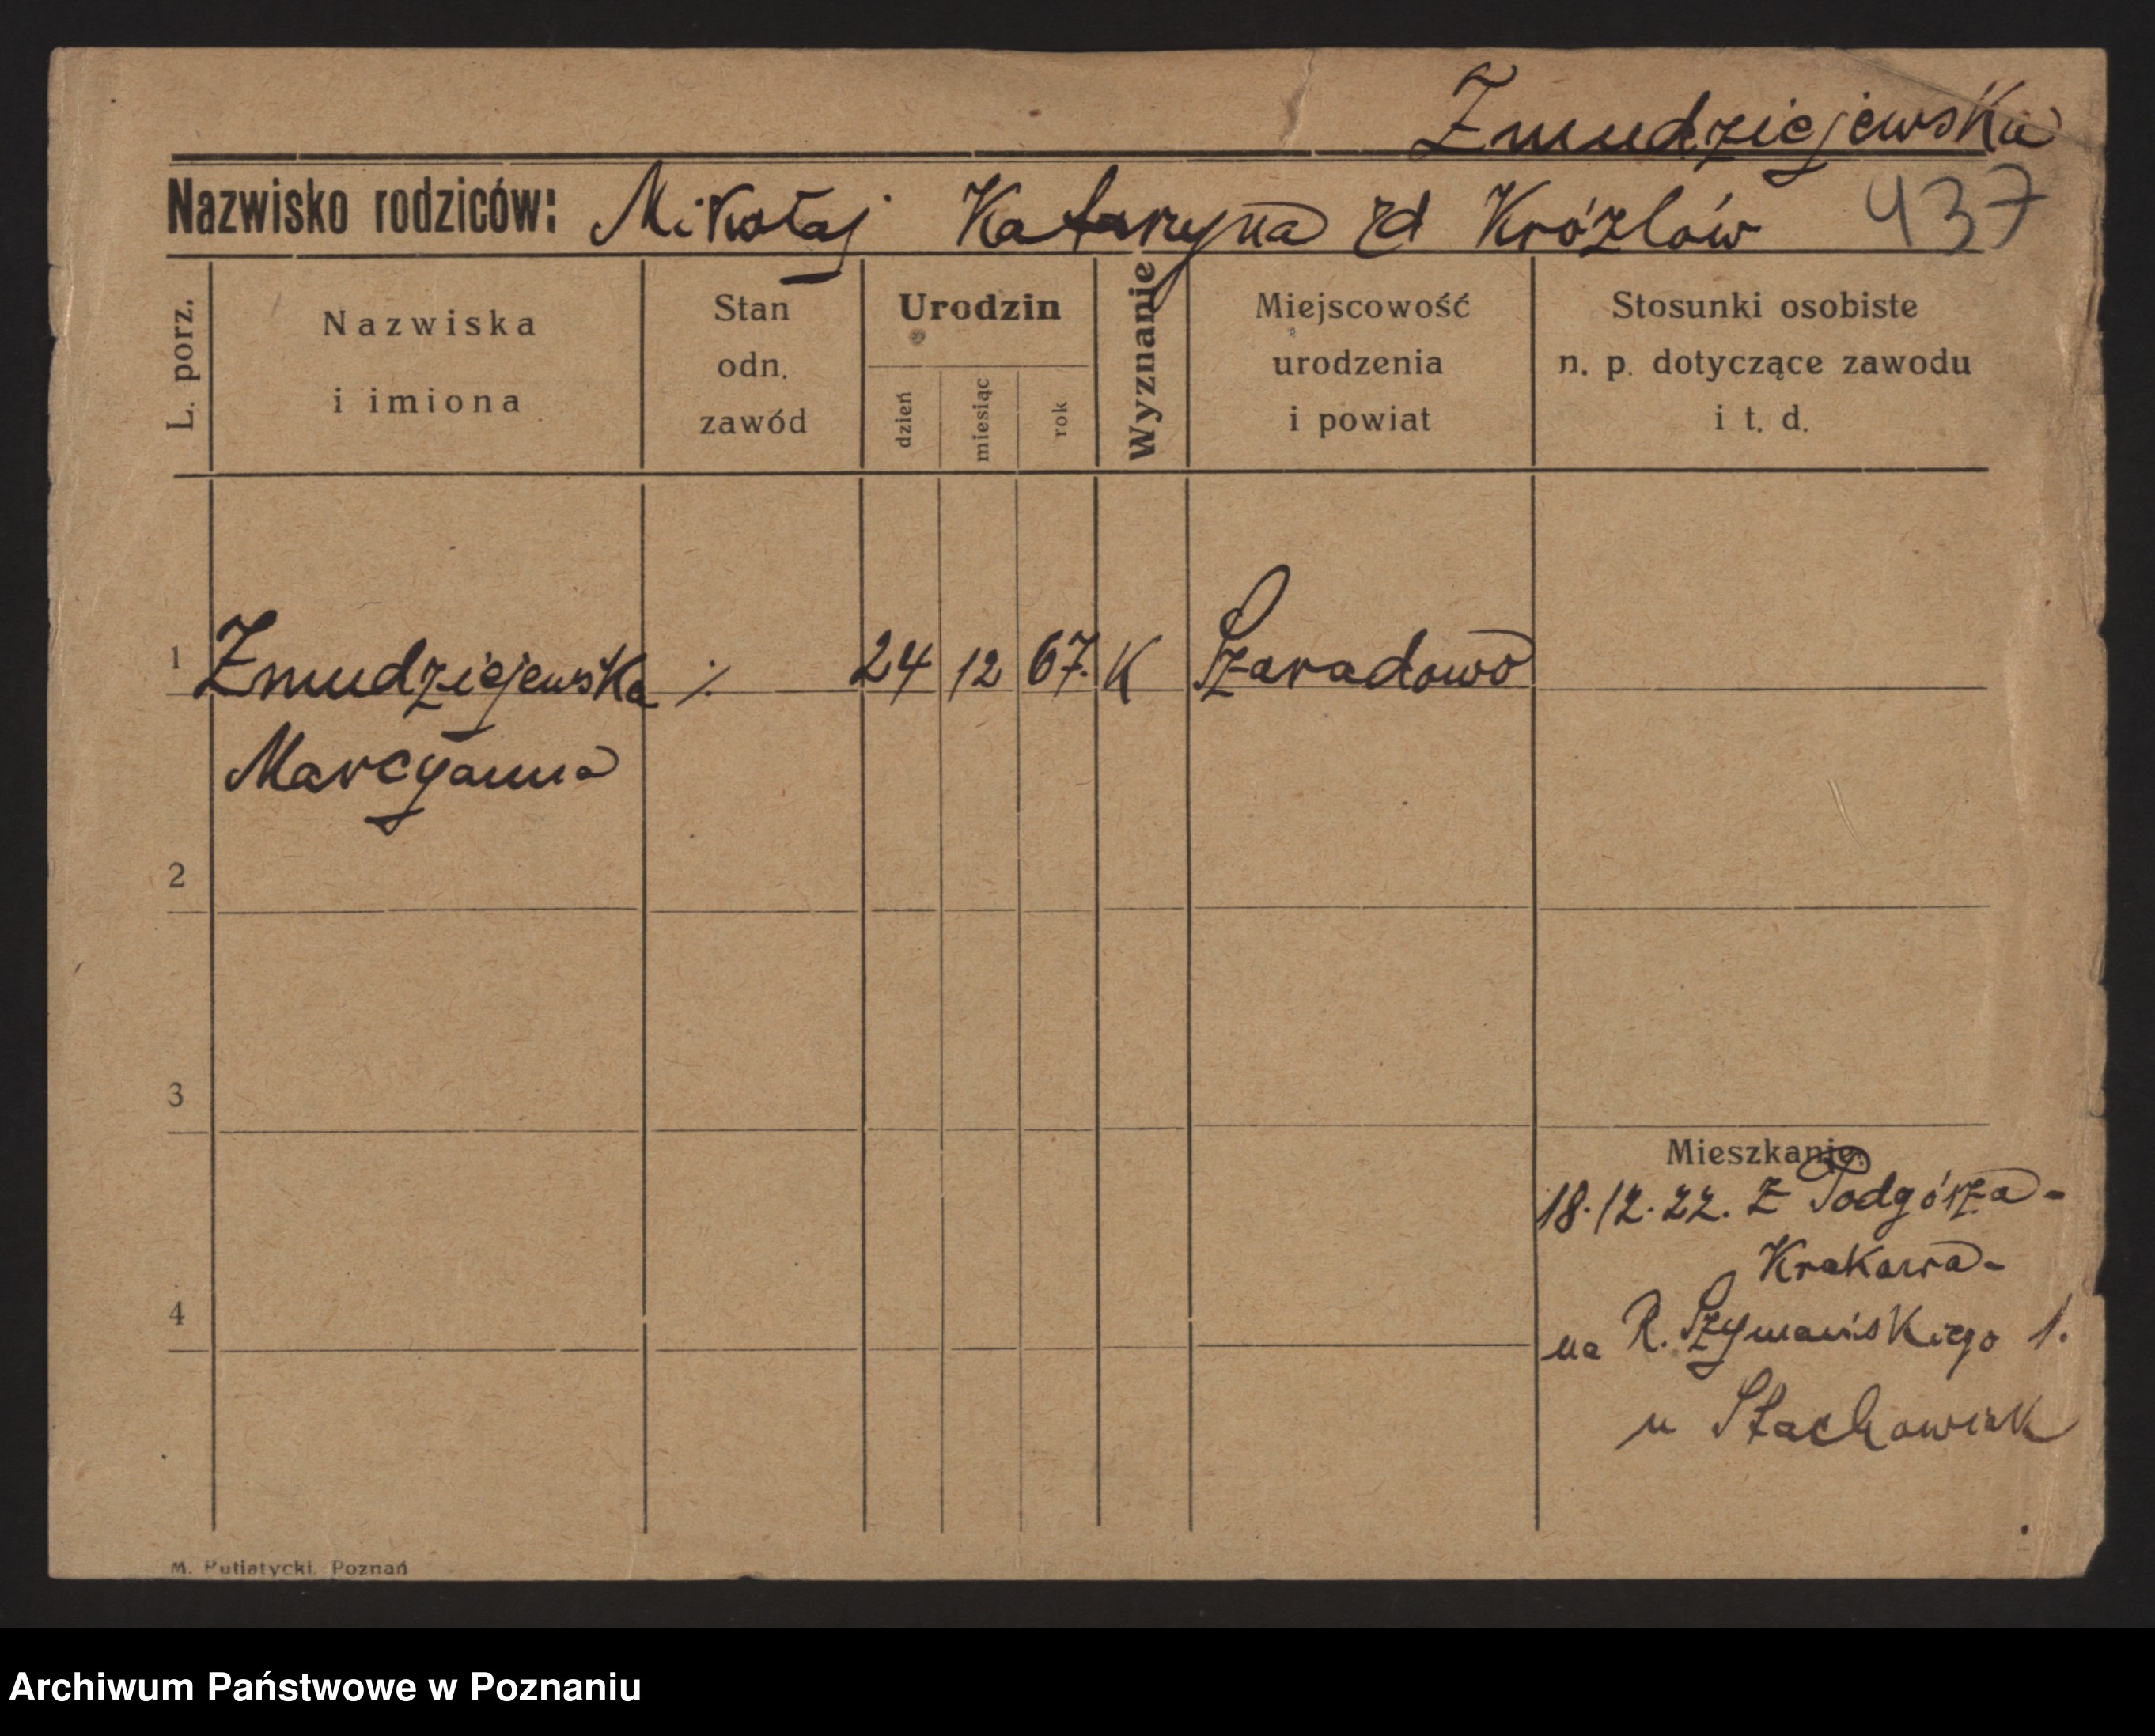 Zmudziejewska
Nazwisko rodziców: Mikołaj Katarzyna zd Krózlów 437
L. porz.
Nazwiska
i imiona
Stan
odn.
zawód
Urodzin
dzień
miesiąc
rok
Wyznanie
Miejscowość
urodzenia
i powiat
Stosunki osobiste
n. p. dotyczące zawodu
i t. d.
1 Zmudziejewska ·/. 24 12 67. K Szaradowo
Marcyanna
2
3
Mieszkanie:
18.12.22. z Podgórza-
Krakowa-
4
na R. Szymańskiego 1.
u Stachowiak
M. Putiatycki, Poznań
Archiwum Państwowe w Poznaniu